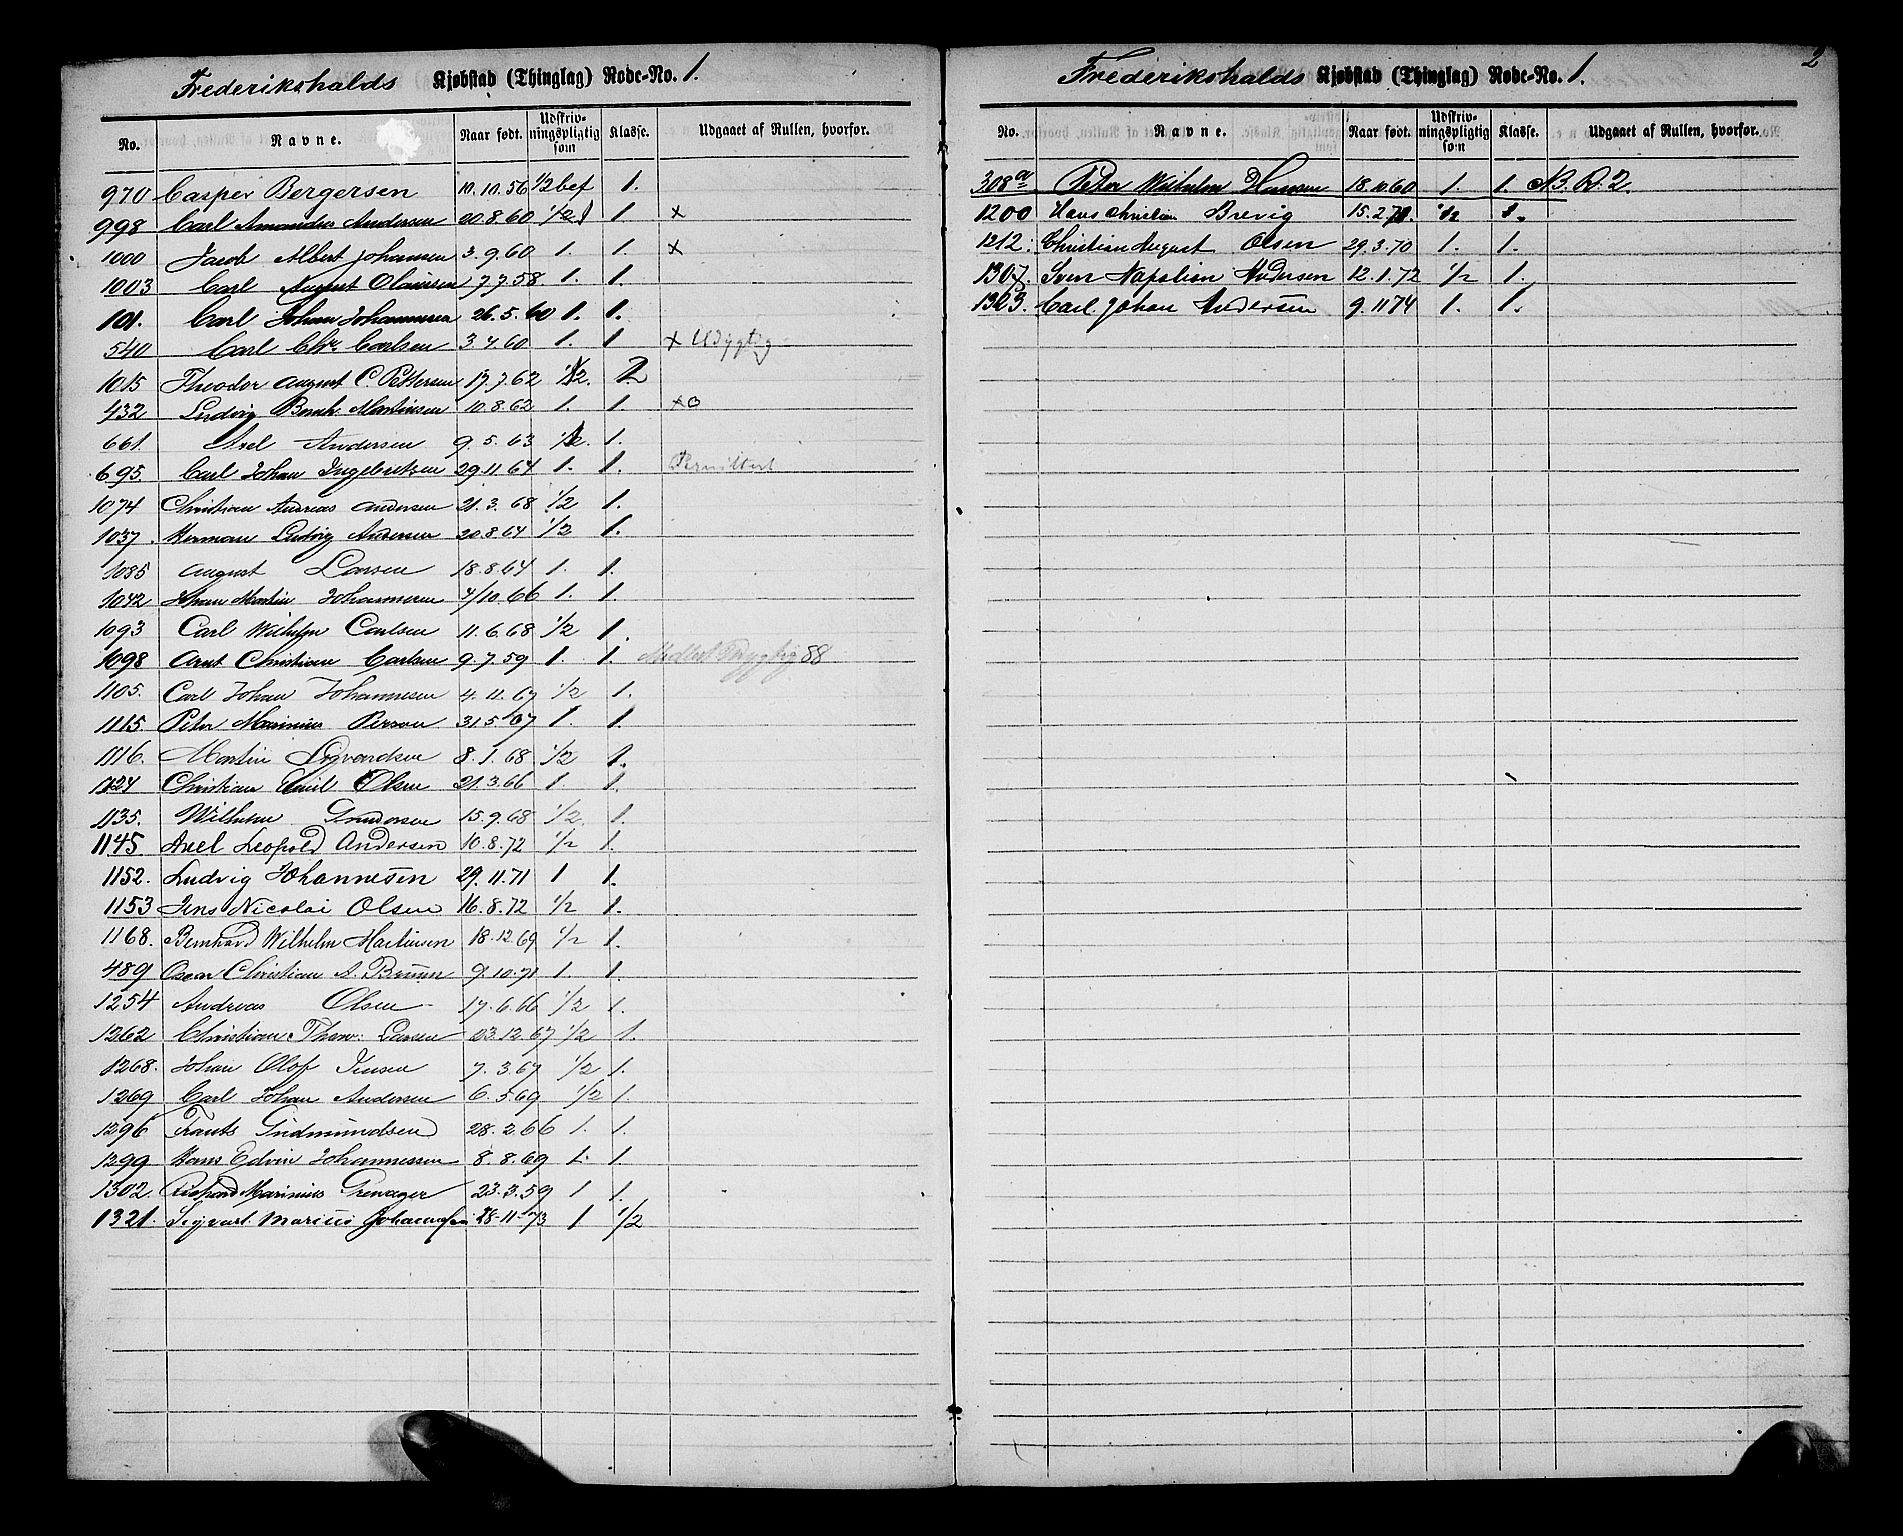 Frederikshalds Kjøbstad (Thinglag) Rode-No. 1.
No. Navne. Naar født. Udskrivningspligtig som Klasse. Udgaaet af Rullen, hvorfor.
970 Casper Bergersen 10.10.56 1/2 bef 1.
998 Carl Amandus Andersen 20.8.60 1/2 1 x
1000 Jacob Albert Johansen 3.9.60 1. 1. x
1003 Carl August Olaussen 7.7.58 1. 1.
101. Carl Johan Johannesen 26.5.60 1. 1.
540 Carl Chr. Carlsen 3.4.60 1. 1 x Udygtig
1015 Theodor August C. Pettersen 17.7.62 1/2. 2
432 Ludvig Bernh. Martinsen 10.8.62 1. 1. xo
661. Axel Andersen 9.5.63 1/2. 1.
695. Carl Johan Ingebretsen 29.11.64 1. 1.
1074 Christian Andreas Andersen 21.3.68 1/2 1.
1037. Herman Ludvig Andersen 20.8.64 1/2 1.
1085 August Larsen 18.8.64 1. 1.
1042 Johan Martin Johannesen 4/10.66 1. 1.
1093 Carl Wilhelm Carlsen 11.6.68 1/2 1.
1098 Arnt Christian Carlsen 9.7.59 1. 1. 88
1105. Carl Johan Johannesen 4.11.67 1/2 1.
1115. Peter Marinius Person 31.5.67 1. 1.
1116. Martin Sigvardsen 8.1.68 1/2 1.
1124 Christian Emil Olsen 21.3.66 1. 1.
1135. Wilhelm Gundersen 15.9.68 1/2. 1.
1145 Axel Leopold Andersen 10.8.72 1/2 1.
1152. Ludvig Johannesen 29.11.71 1 1.
1153 Jens Nicolai Olsen 16.8.72 1/2 1.
1168. Bernhard Wilhelm Martinsen 18.12.69 1/2 1.
489 Oscar Christian A. Bruun 9.10.71 1 1.
1254 Andreas Olsen 17.6.66 1/2 1.
1262 Christian Thorv. Larsen 23.12.67 1/2 1.
1268. Johan Olof Jensen 7.3.67 1/2 1.
1269 Carl Johan Andersen 6.5.69 1/2 1.
1296 Frants Gudmundsen 28.2.66 1. 1.
1299 Hans Edvin Johannessen 8.8.69 1. 1.
1302. Marinius Grenager 23.3.59 1 1.
1321. Sigvart Marius Johannesen 28-11-73 1 1/2
2
Frederikshalds Kjøbstad (Thinglag) Rode-No. 1.
No. Navne. Naar født. Udskrivningspligtig som Klasse. Udgaaet af Rullen, hvorfor.
308a Peter Wilhelm Hansen 18.10.60 1. 1. N. R. 2.
1200 Hans Christian Brevig 15.2.71. 1/2 1.
1212. Christian August Olsen 29.3.70 1. 1.
1307. Sven Napolion Andersen 12.1.72 1/2 1.
1323. Carl Johan Andersen 9.11 74 1. 1.